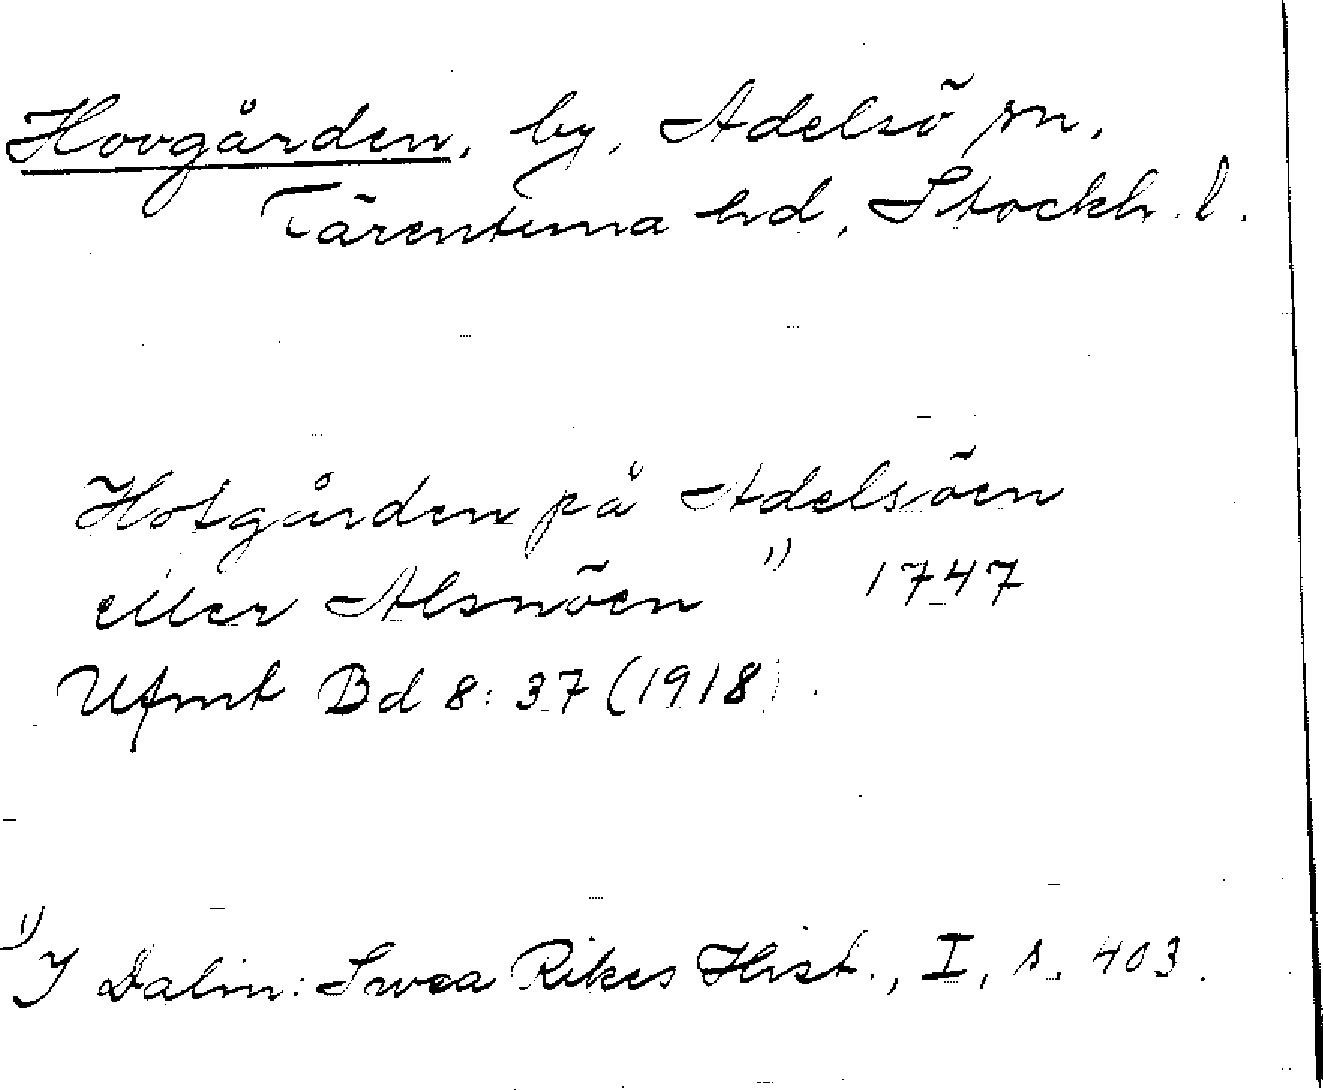 Hovgården, by, Adelsö sn,
Färentuna hd, Stockh. l.
Hofgården på Adelsöen
eller Alsnöen 1) 1747
Ufmt Bd 8: 37 (1918).
1) I Dalin: Swea Rikes Hist., I, s. 403.